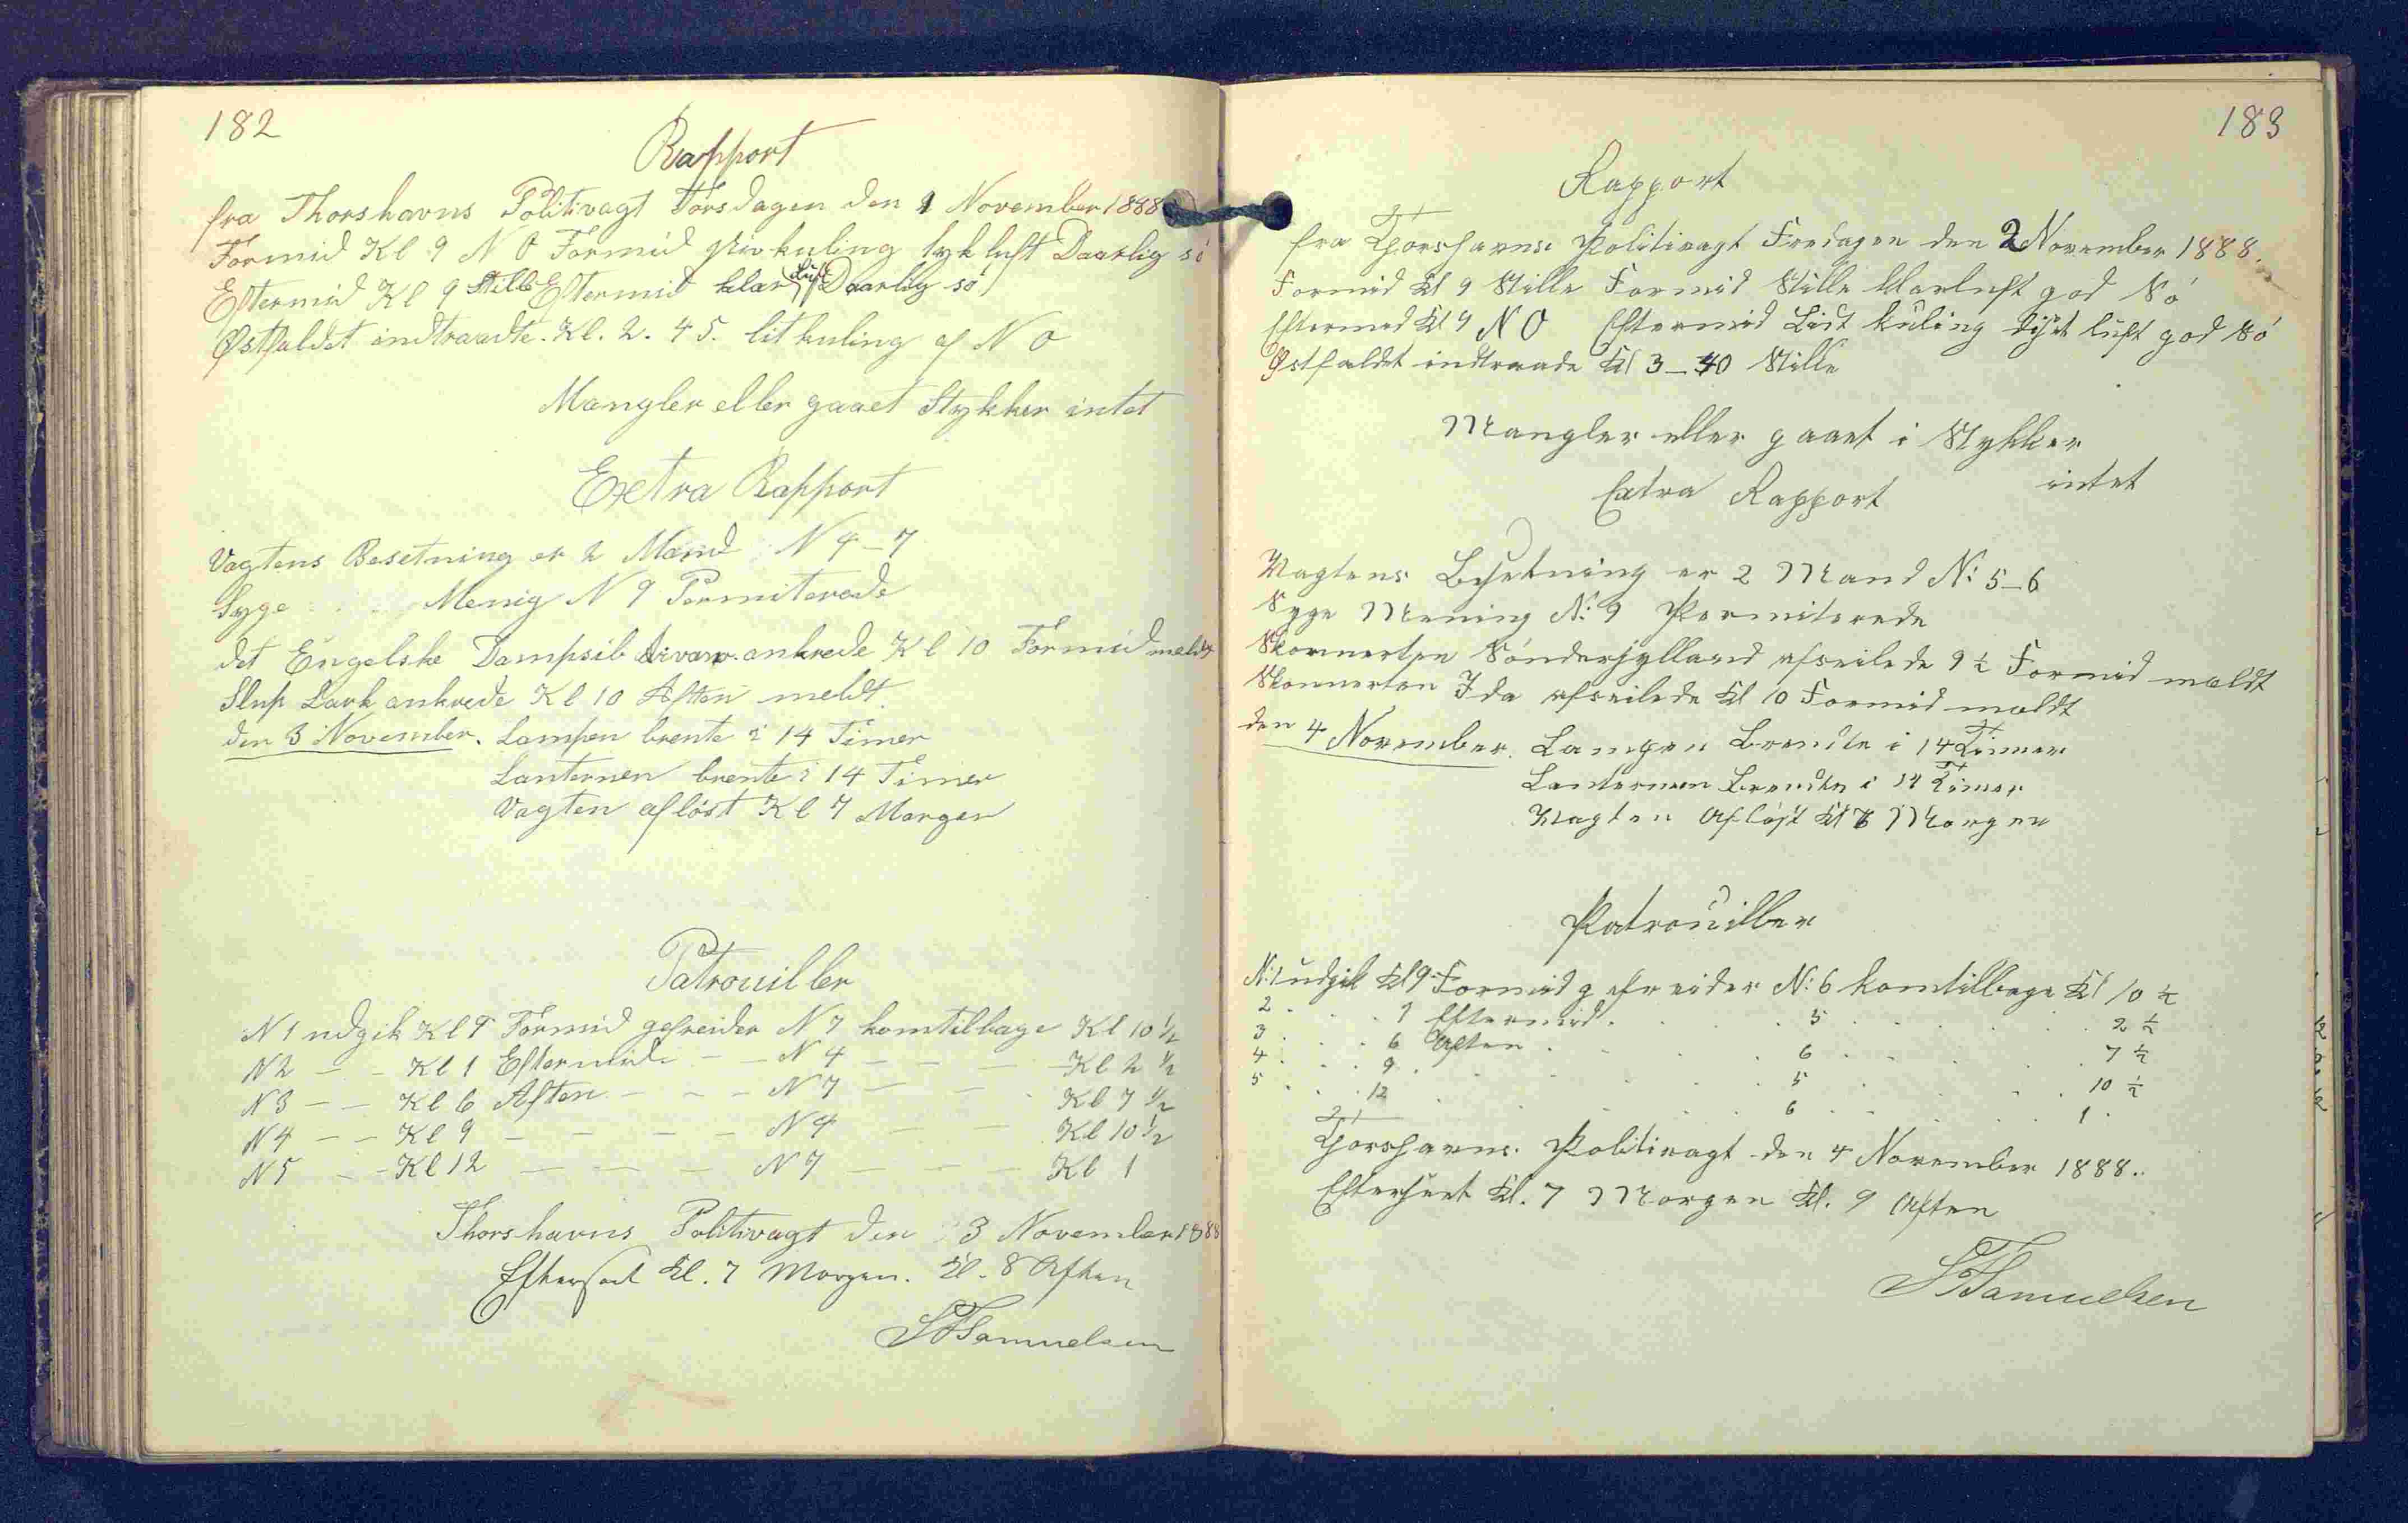 182
Rapport
fra Thorshavns Politivagt Torsdagen den 1 November 1888
Formid Kl 9 N O Formid stivkuling tyk luft Daarlig sö
Eftermid Kl 9 Stille Eftermid klar luft Daarlig sö
Østfaldet indtraadte. Kl. 2. 45. lit kuling af N O
Mangler eller gaaet Stykker intet
Extra Rapport
Vagtens Besetning er 2 Mand N 4-7
Syge Menig N 9 Permiterede
det Engelske Dampsib ankrede Kl 10 Formid meldt
Slup Lark ankrede Kl 10 Aften meldt.
den 3 November. Lampen brente i 14 Timer
Lanternen brente i 14 Timer
Vagten aflöst Kl 7 Morgen
Patrouiller
N 1 udgik Kl 9 Formid gefreider N 7 komtilbage Kl 10 1/2
N 2 - - Kl 1 Eftermid - - N 4 - - - Kl 2 1/2
N 3 - - Kl 6 Aften - - - N 7 - - Kl 7 1/2
N 4 - - Kl 9 - - - - N 4 - - Kl 10 1/2
N 5 - - Kl 12 - - - - N 7 - - - Kl 1
Thorshavns Politivagt den 3 November 1888
Efterset Kl. 7 Morgen. Kl. 8 Aften
Samuelsen
183
Rapport
fra Thorshavns Politivagt Fredagen den 2 November 1888.
Formid Kl 9 Stille Formid Stille klarluft god Sö
Eftermed Kl 9 N O Eftermid Lidt kuling luft god Sö
Østfaldet indtraade Kl 3-40 Stille
Mangler eller gaaet i Stykker
intet
Extra Rapport
Vagtens Besetning er 2 Mand N: 5-6
Syge Mening N: 9 Permiterede
Skonnerten Sönderjylland afseilede 9 1/2 Formid meldt
Skonnerten Ida afseilede Kl 10 Formid meldt
den 4 November. Lampen brendte i 14 Timer
Lanternen brendte i 14 Timer
Vagten Aflöst Kl 7 Morgen
Patrouiller
N: 1 udgik Kl 9 Formid gefreider N: 6 komtilbage Kl 10 1/2
2 . . . 1 Eftermid . . . 5 . . . 2 1/2
3 . . . 6 Aften . . . 6 . . . 7 1/2
4 . . . 9 . . . 5 . . . 10 1/2
5 . . . 12 . . . 6 . . . 1 .
Thorshavns. Politivagt den 4 November 1888.
Efterset Kl. 7 Morgen Kl. 9 Aften
Samuelsen